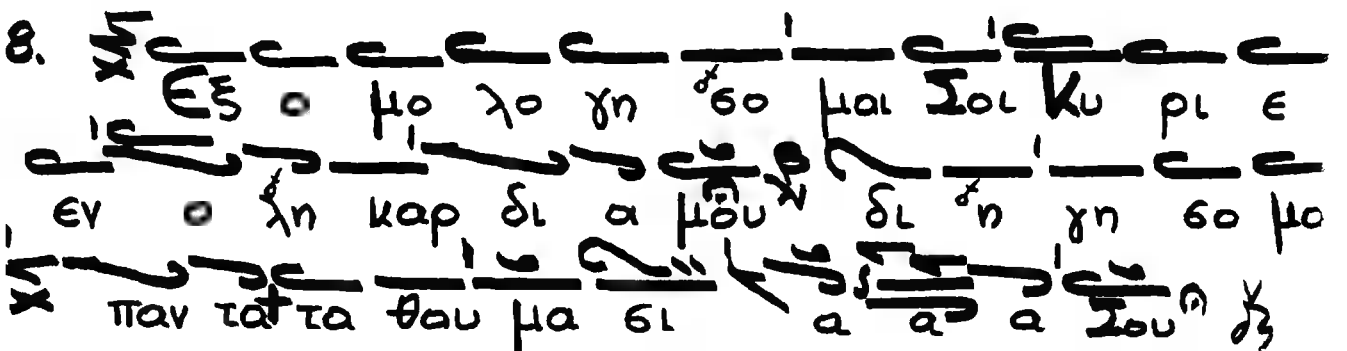 8. Εξ ο μο λο γη σο μαι Σοι Κυ ρι ε
εν ο λη καρ δι α μου δι η γη σο μο
παν τα τα θαυ μα σι α α α Σου